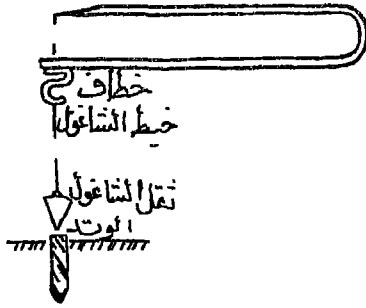 خطاف
خيط الشاغول
ثقل الشاغول
الوتد